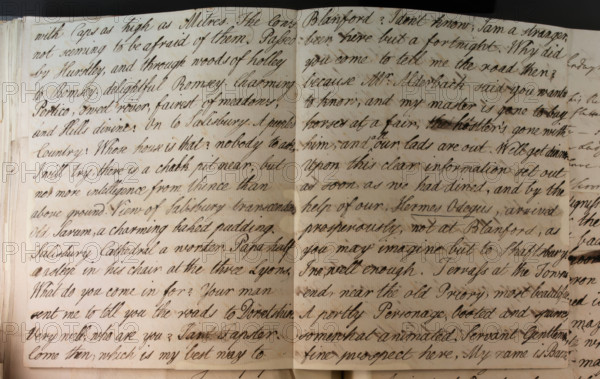 with Caps as high as Mitres. The Cows
not seeming to be afraid of them. Passed
by Hursley, and through woods of holley
to Romsey, delightful Romsey, charming
Portico, sweet river, fairest of meadows,
and Hills divine. On to Salisbury. A purple
Country. Whose house is that? nobody to ask,
I will try, there is a chalk pit near, but
no more intelligence from thence than
above ground. View of Salisbury transcendent
Old Sarum, a charming baked pudding.
Salisbury Cathedral a wonder. Papa half
asleep in his chair at the three Lyons.
What do you come in for? Your man
sent me to tell you the roads to Dorsetshire.
Very well, who are you? I am
Come then, which is my best way to
Blanford? I don't know, I am a stranger,
been here but a fortnight. Why did
you come to tell me the road then?
because Mr. said you wants
to know, and my master is gone to buy
horses at a fair, the hostler's gone with
him, and our lads are out. Well get down
Upon this clear information set out
as soon as we had dined, and by the
help of our Hermes Odegus, arrived
prosperously, not at Blanford, as
you may imagine but to Shaftsbury
Inn well enough. Terrass at the Towns
end, near the old Priory, most beautiful
A portly Personage, booted and spurred
somewhat animated. Servant Gentlemen,
fine prospect here, My name is
the